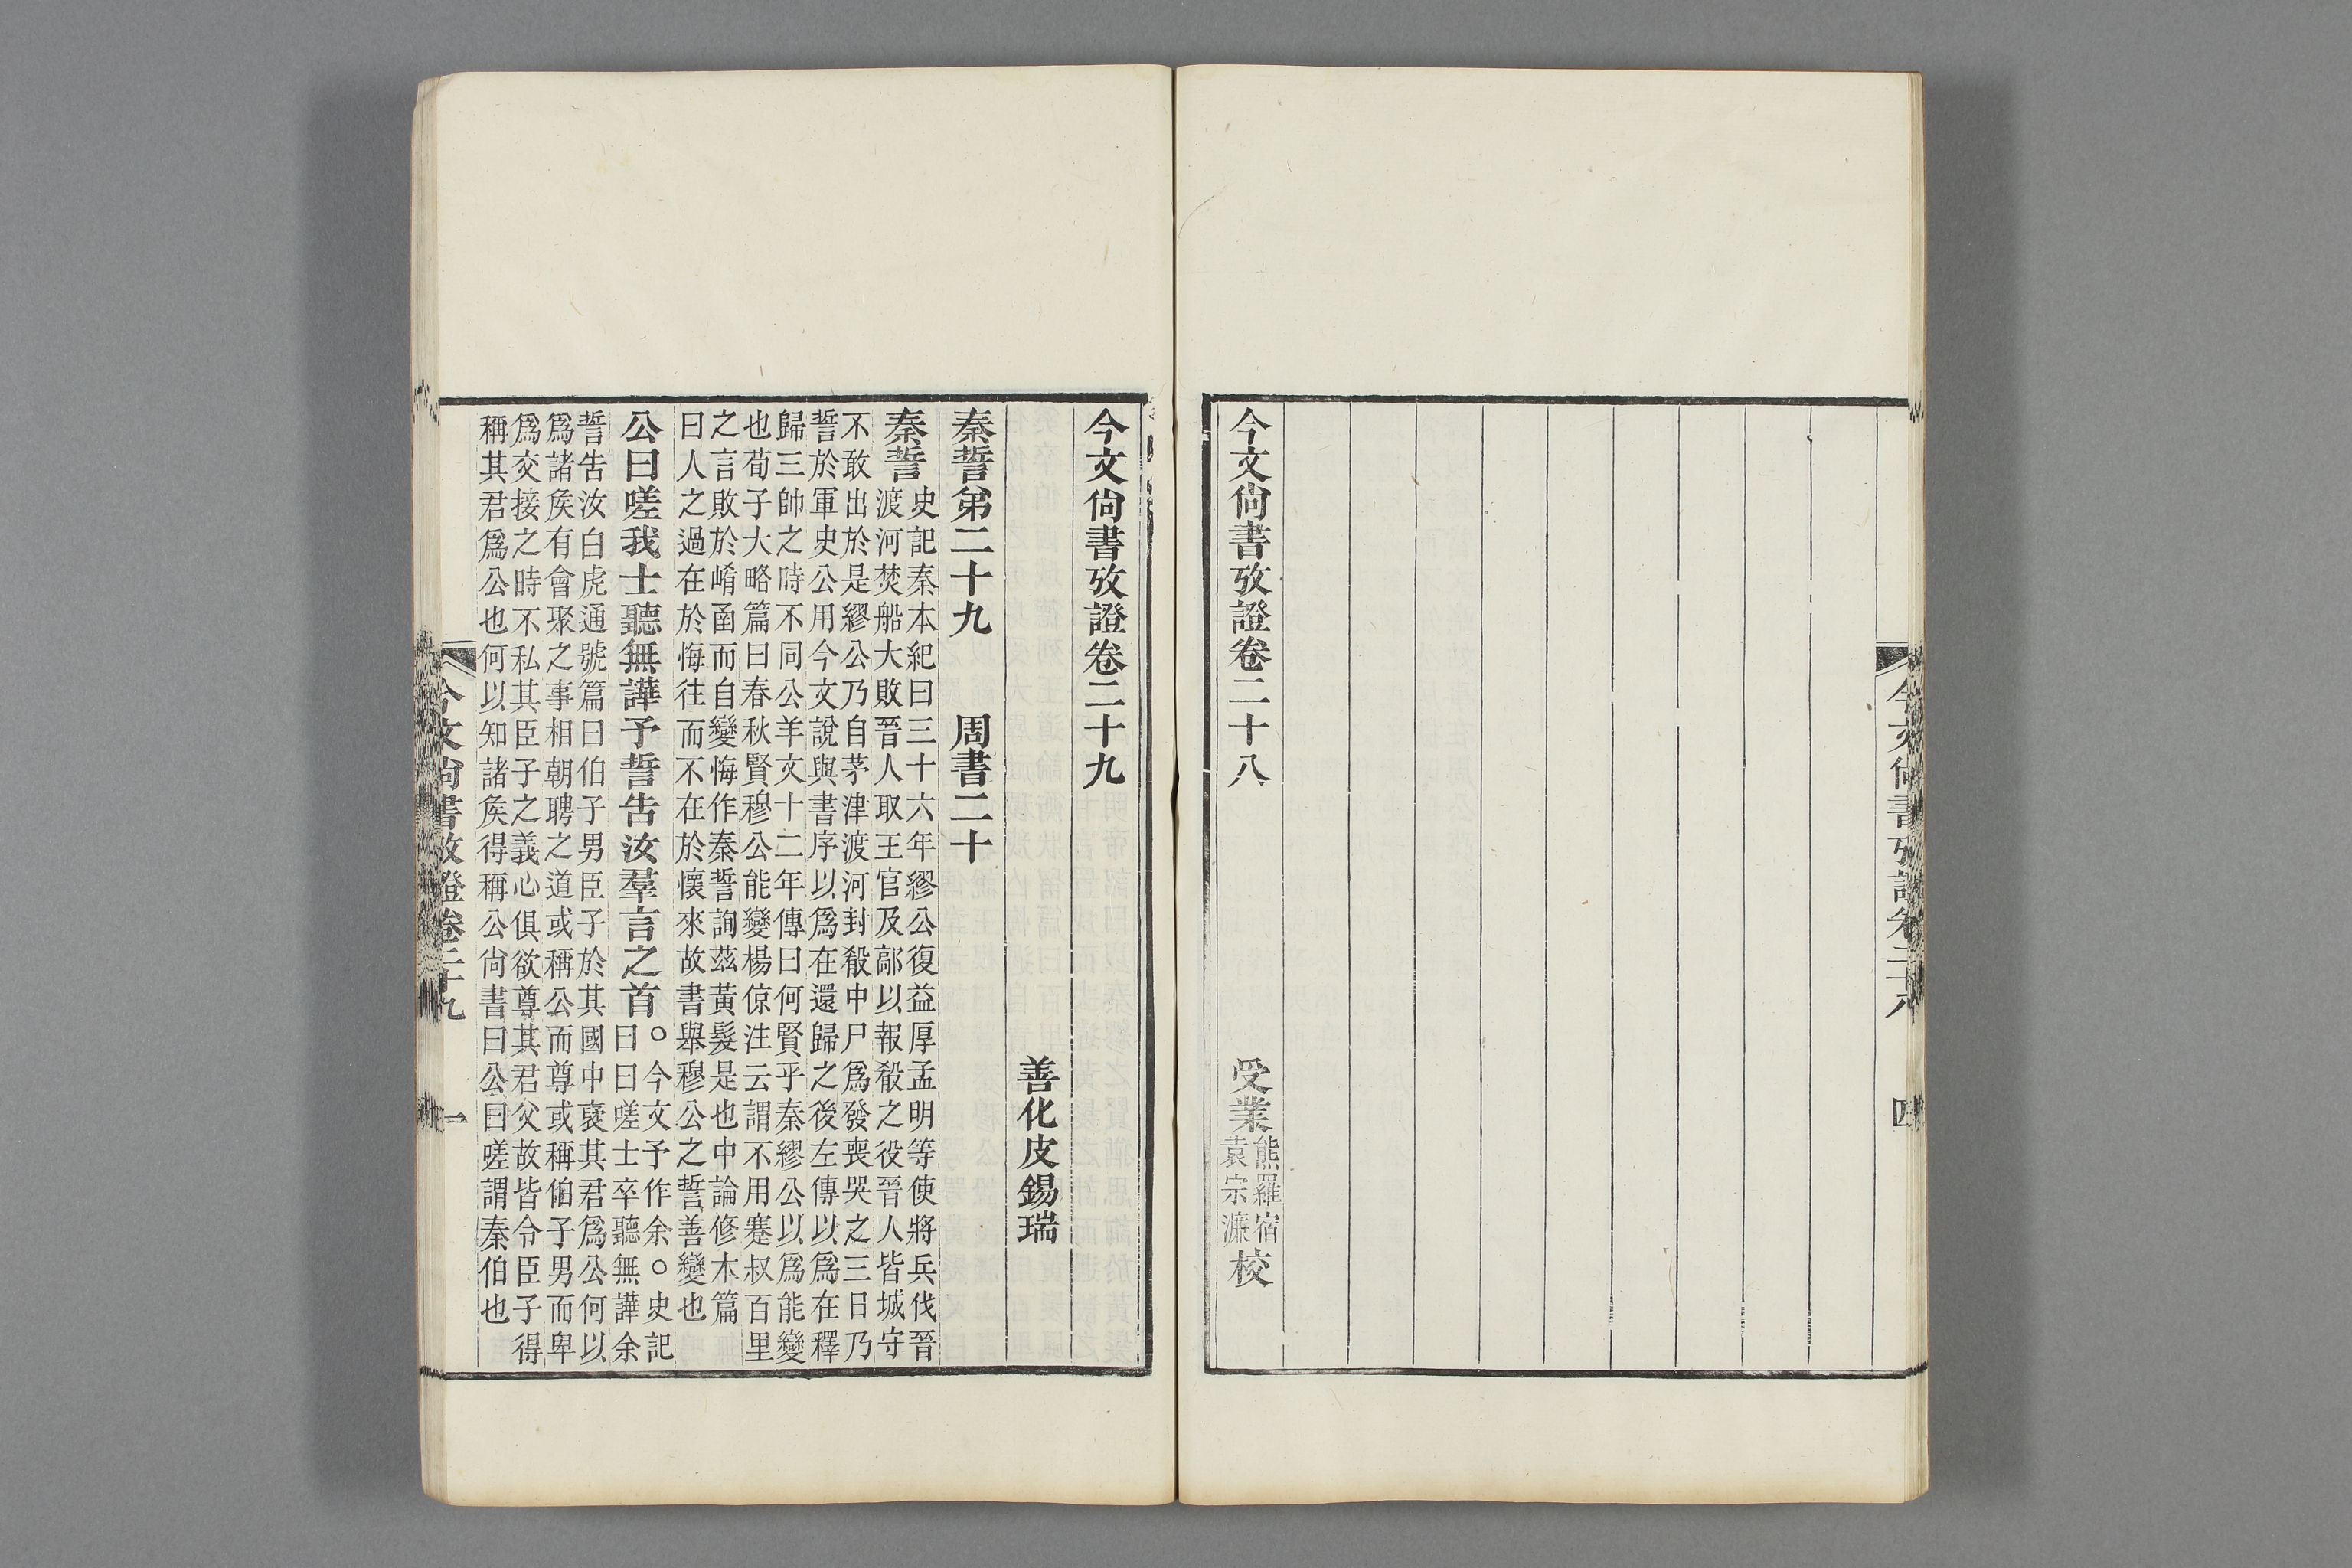 今文尙書攷證卷二十八
四
今文尙書攷證卷二十八
受業
熊羅宿
袁宗濂
校
今文尙書攷證卷二十九
善化皮錫瑞
秦誓第二十九
周書二十
秦誓
史記秦本紀曰三十六年繆公復益厚孟明等使將兵伐晉
渡河焚船大敗晉人取王官及鄗以報殽之役晉人皆城守
不敢出於是繆公乃自茅津渡河封殽中尸爲發喪哭之三日乃
誓於軍史公用今文說與書序以爲在還歸之後左傳以爲在釋
歸三帥之時不同公羊文十二年傳曰何賢乎秦繆公以爲能變
也荀子大略篇曰春秋賢穆公能變楊倞注云謂不用蹇叔百里
之言敗於崤函而自變悔作秦誓詢茲黃髮是也中論修本篇
曰人之過在於悔往而不在於懷來故書舉穆公之誓善變也
公曰嗟我士聽無譁予誓告汝羣言之首
○今文予作余○史記
曰曰嗟士卒聽無譁余
誓告汝白虎通號篇曰伯子男臣子於其國中襃其君爲公何以
爲諸矦有會聚之事相朝聘之道或稱公而尊或稱伯子男而卑
爲交接之時不私其臣子之義心俱欲尊其君父故皆令臣子得
稱其君爲公也何以知諸矦得稱公尙書曰公曰嗟謂秦伯也
今文尙書攷證卷二十九
一